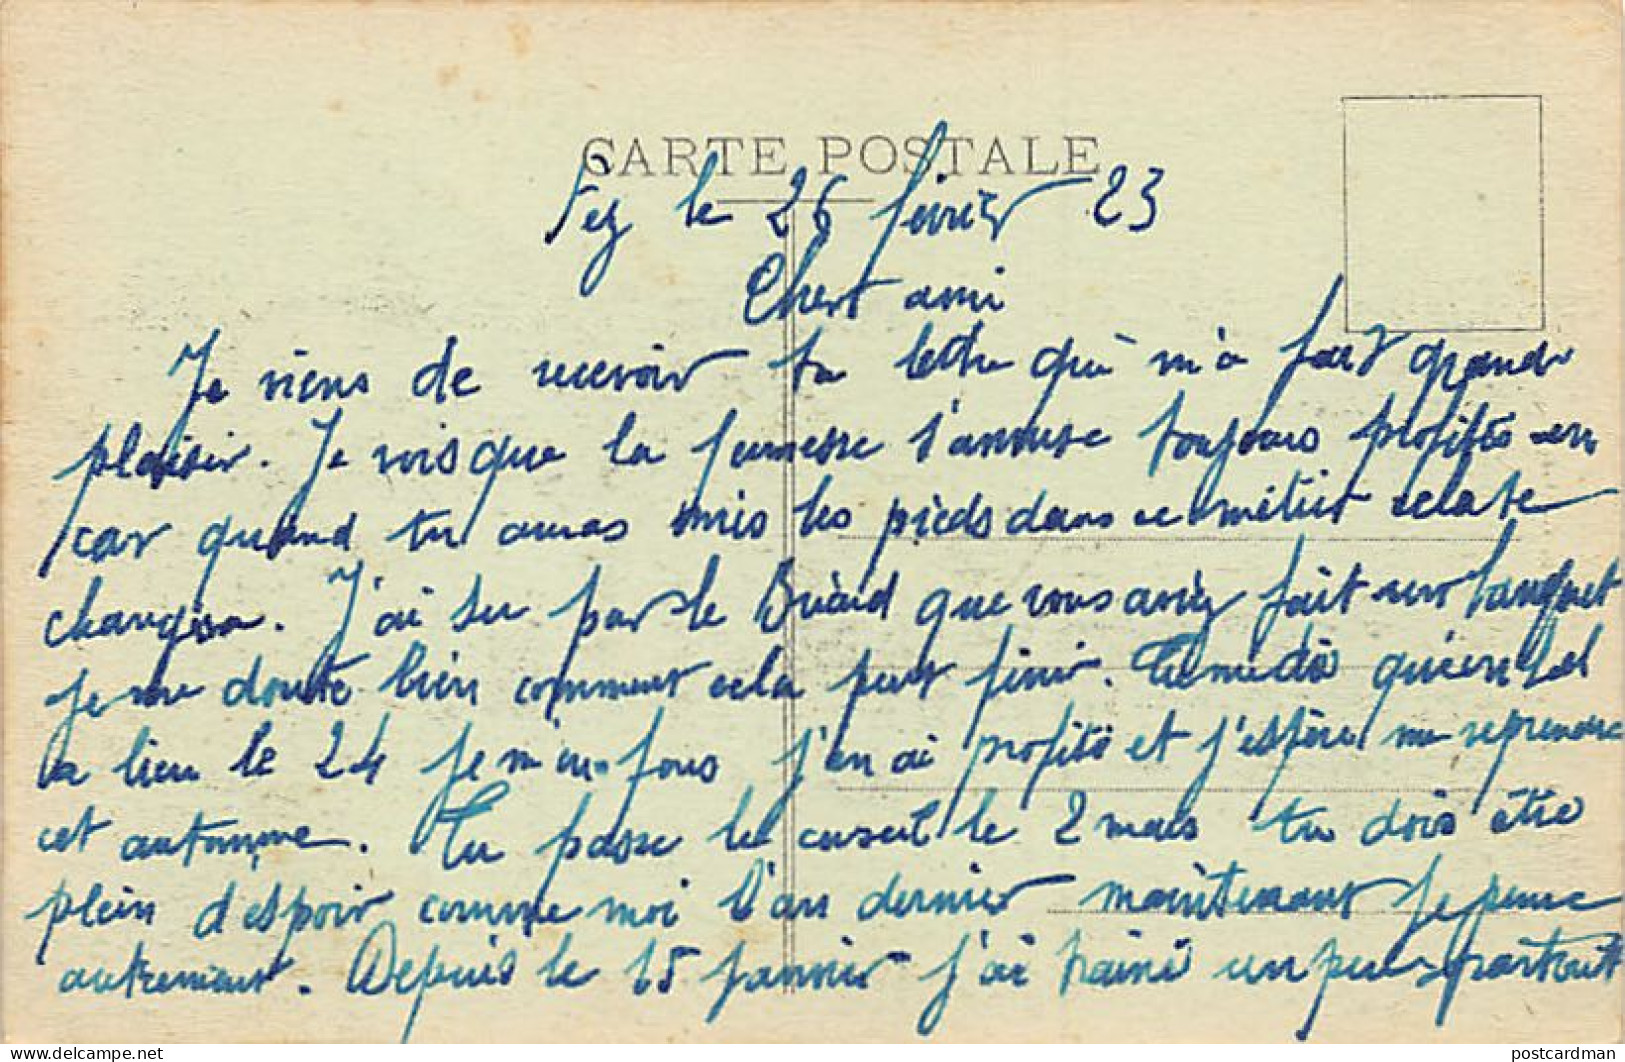 CARTE POSTALE
Fez le 26 février 23
Chert ami
Je viens de recevoir ta lettre qui m'a fait grand
plaisir. Je vois que la jeunesse s'amuse toujours profités-en
car quand tu auras mis les pieds dans ce métier cela te
changera. J'ai su par le que vous aviez fait un banquet
je me doute bien comment cela peut finir. Tu me dis qu'en Bel
a lieu le 24 je m'en fous j'en ai profité et j'espère me reprendre
cet automne. Tu passe le conseil le 2 mars tu dois être
plein d'espoir comme moi l'an dernier maintenant je pense
autrement. Depuis le 15 janvier j'ai trainé un peu partout
postcardman